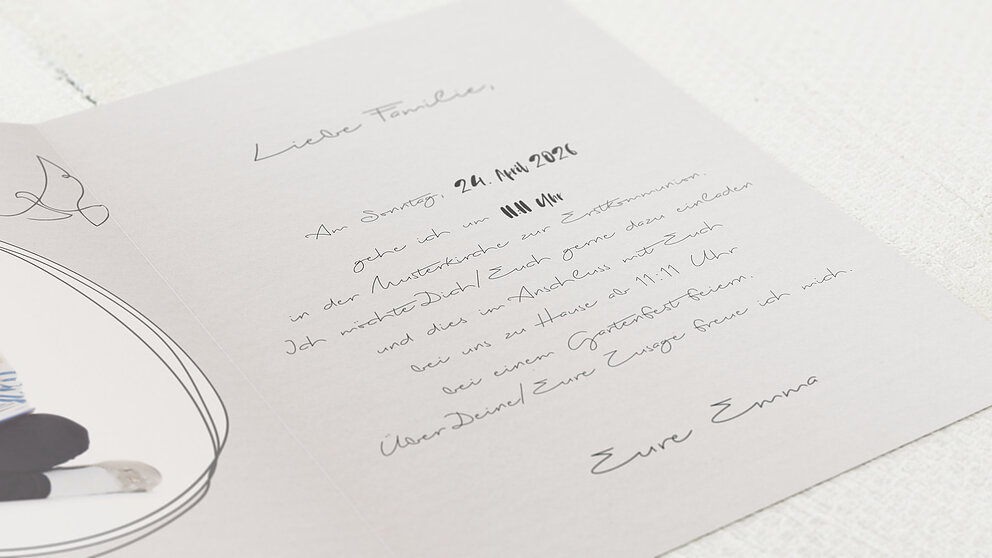 Liebe Familie,
Am Sonntag, 24. April 2026
gehe ich um 11.11 Uhr
in der Musterkirche zur Erstkommunion.
Ich möchte Dich/Euch gerne dazu einladen
und dies im Anschluss mit Euch
bei uns zu Hause ab 11:11 Uhr
bei einem Gartenfest feiern.
Über Deine/Eure Zusage freue ich mich.
Eure Emma